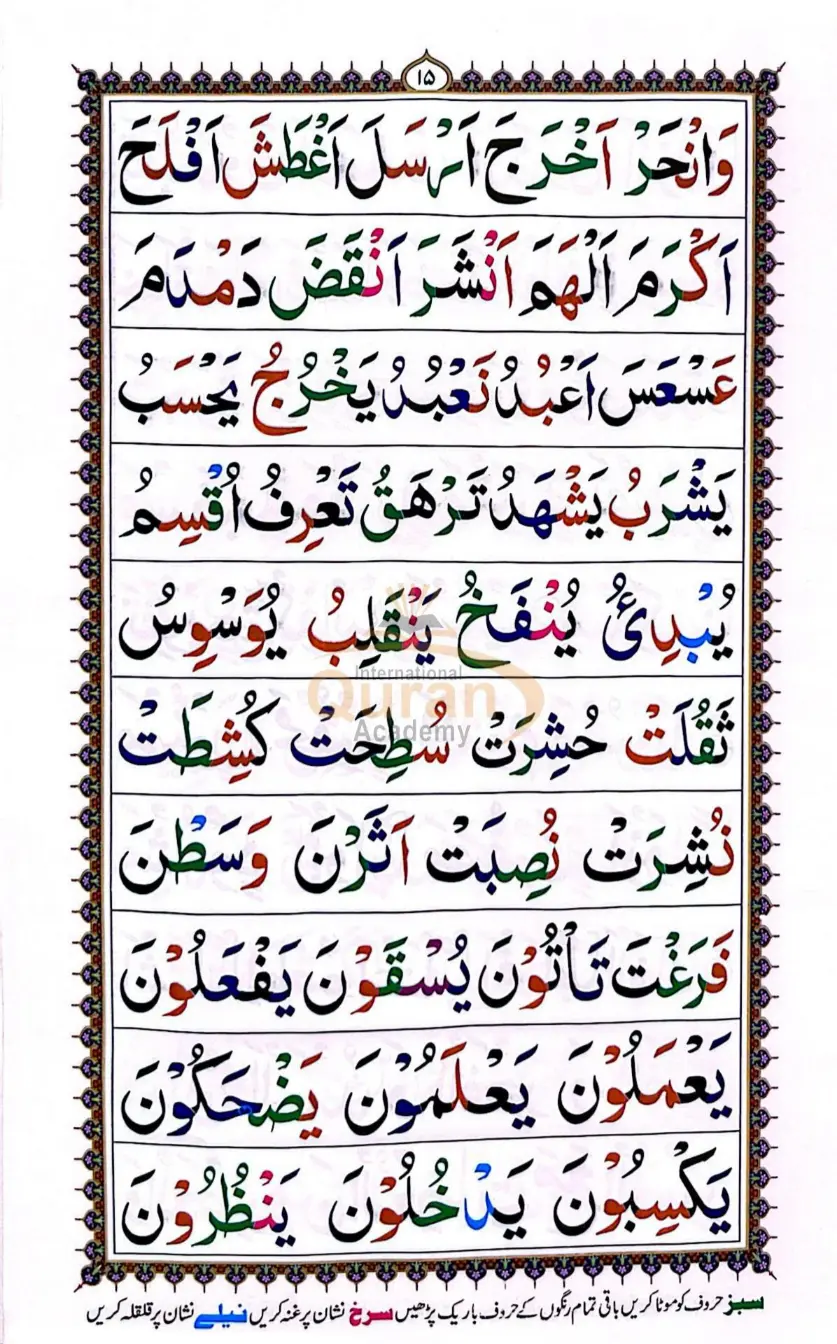 ۱۵
وَانْحَرْ اَخْرَجَ اَرْسَلَ اَغْطَشَ اَفْلَحَ
اَكْرَمَ اَلْهَمَ اَنْشَرَ اَنْقَضَ دَمْدَمَ
عَسْعَسَ اَعْبُدُ نَعْبُدُ يَخْرُجُ يَحْسَبُ
يَشْرَبُ يَشْهَدُ تَرْهَقُ تَعْرِفُ اُقْسِمُ
يُبْدِئُ يُنْفَخُ يَنْقَلِبُ يُوَسْوِسُ
International
Quran
Academy
ثَقُلَتْ حُشِرَتْ سُطِحَتْ كُشِطَتْ
نُشِرَتْ نُصِبَتْ اَثَرْنَ وَسَطْنَ
فَرَغْتَ تَأْتُوْنَ يُسْقَوْنَ يَفْعَلُوْنَ
يَعْمَلُوْنَ يَعْلَمُوْنَ يَضْحَكُوْنَ
يَكْسِبُوْنَ يَدْخُلُوْنَ يَنْظُرُوْنَ
سبز حروف کو موٹا کریں باقی تمام رنگوں کے حروف باریک پڑھیں سرخ نشان پر غنہ کریں نیلے نشان پر قلقلہ کریں